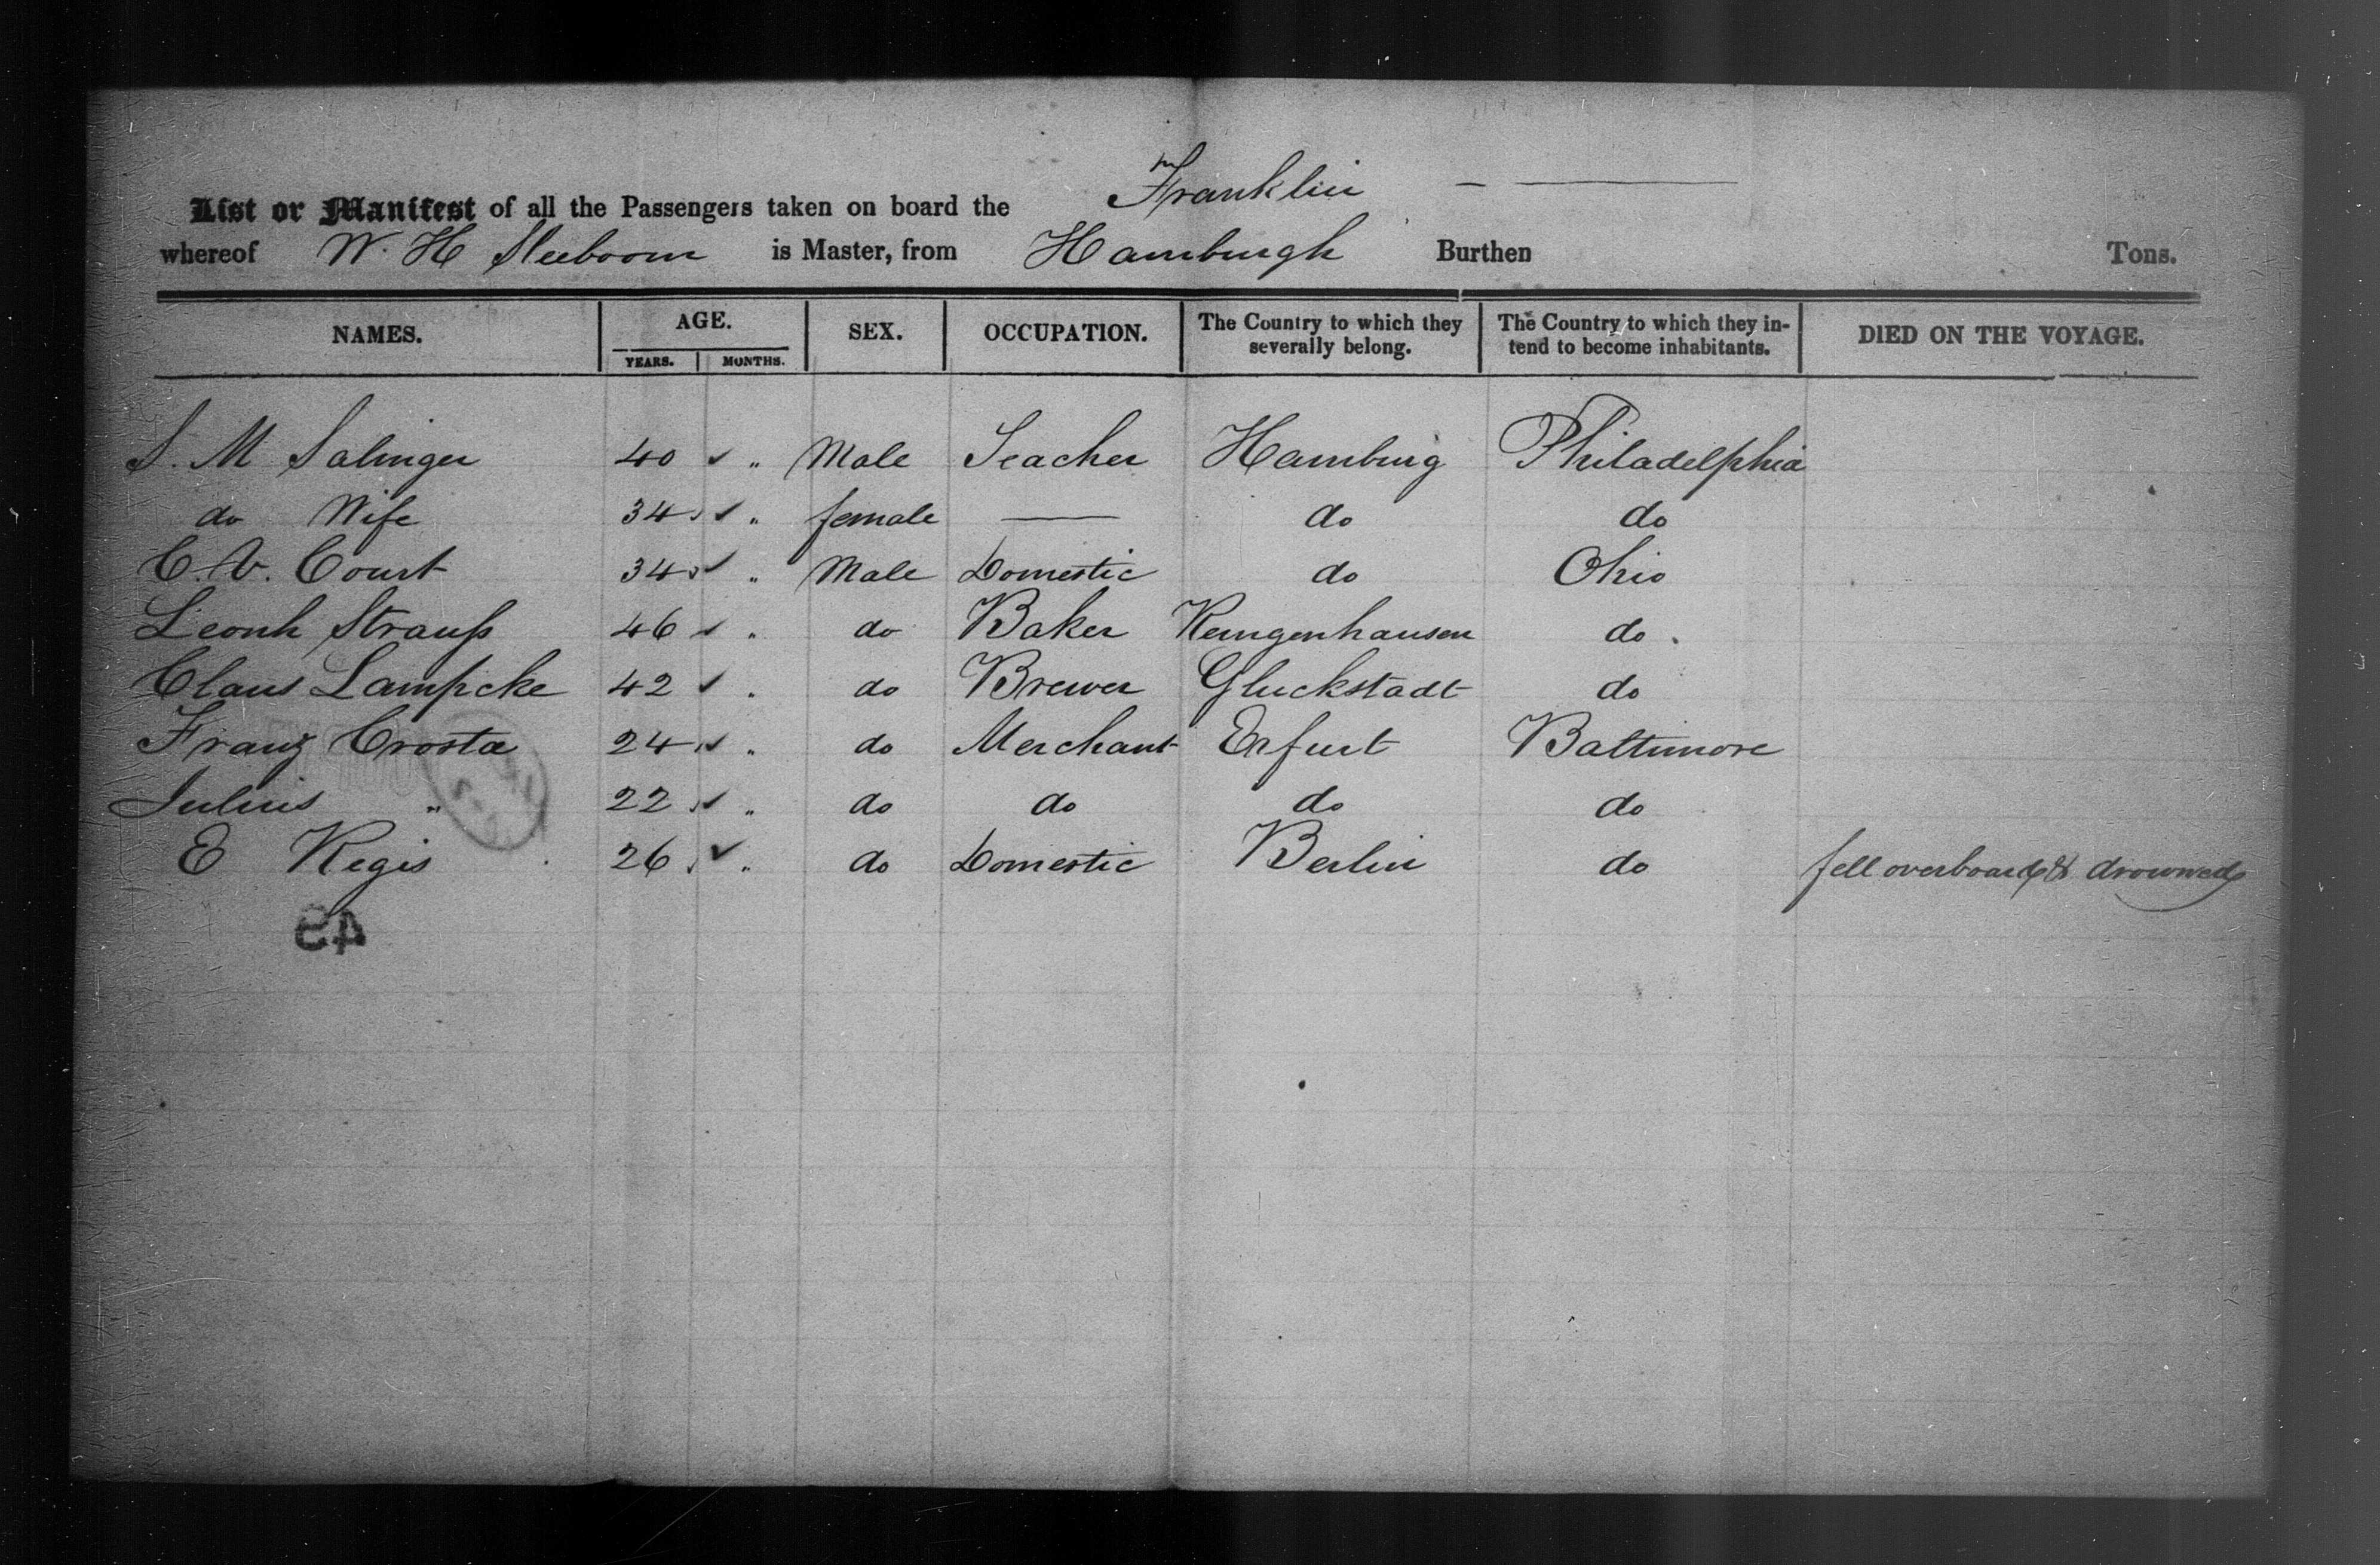 List or Manifest of all the Passengers taken on board the Franklin
whereof W. H Sleeboom is Master, from Hamburgh Burthen Tons.
NAMES. AGE. SEX. OCCUPATION. The Country to which they severally belong. The Country to which they in-tend to become inhabitants. DIED ON THE VOYAGE.
YEARS. MONTHS.
S. M Salinger 40 ✓ " Male Teacher Hamburg Philadelphia
do Wife 34 ✓ " female — do do
C. V. Court 34 ✓ " Male Domestic do Ohio
Leonh Strauß 46 ✓ " do Baker do
Claus Lampcke 42 ✓ " do Brewer Gluckstadt do
Franz Crosta 24 ✓ " do Merchant Erfurt Baltimore
Julius " 22 ✓ " do do do do
E Regis 26 ✓ " do Domestic Berlin do fell overboard & drowned